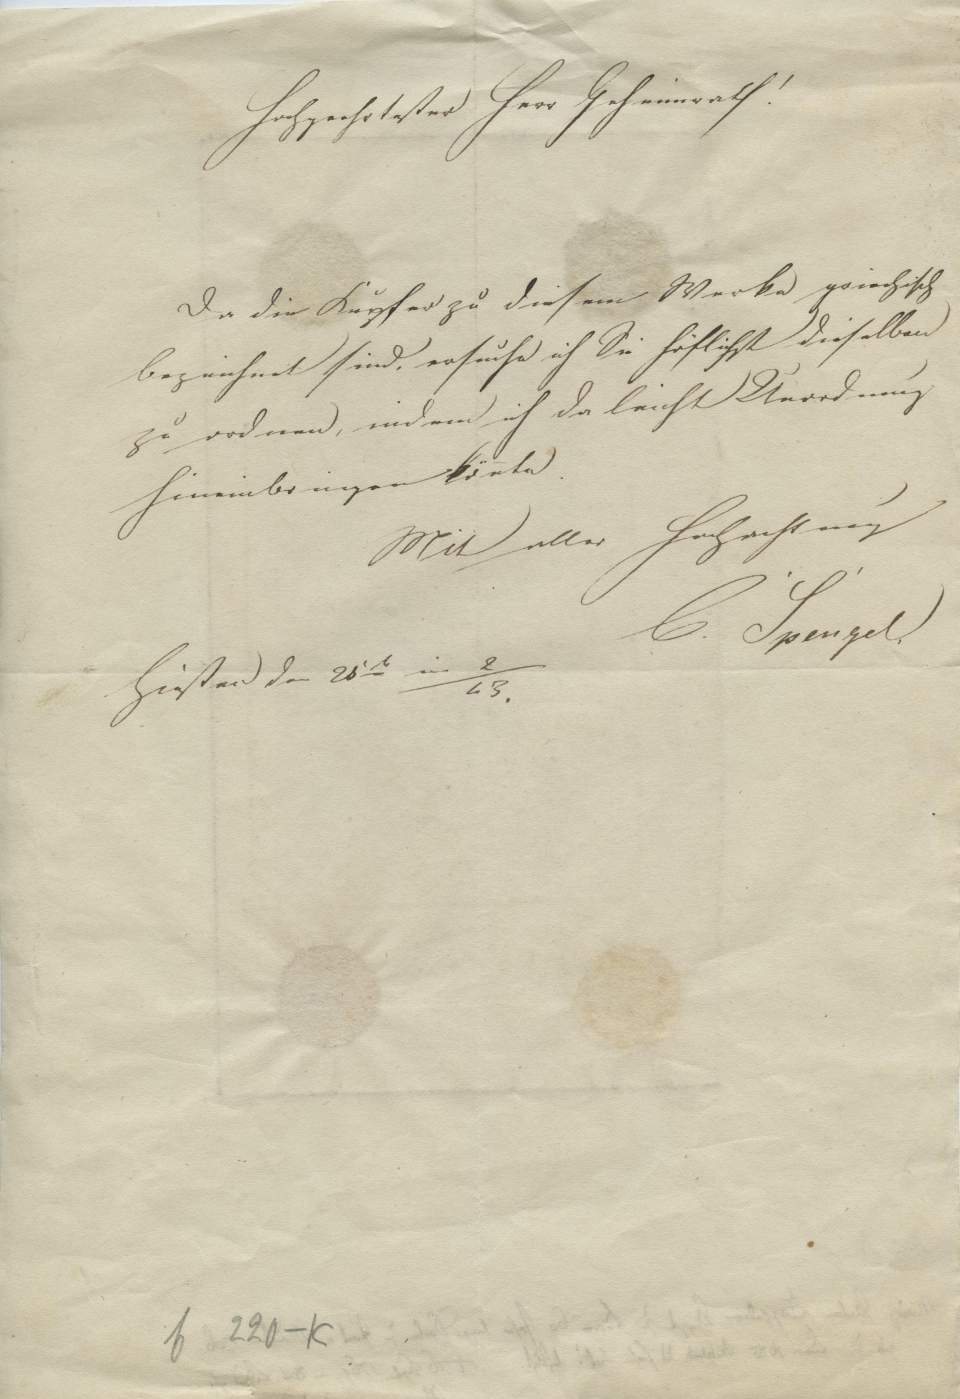 Hochgeehrtester Herr Geheimrath!
Da die Kupfer zu diesem Werke griechisch
bezeichnet sind, ersuche ich Sie höflichst dieselben
zu ordnen, indem ich da leicht Unordnung
hineinbringen könnte.
Mit aller Hochachtung
C. Spengel.
den 25t in 2/43.
f 220-K